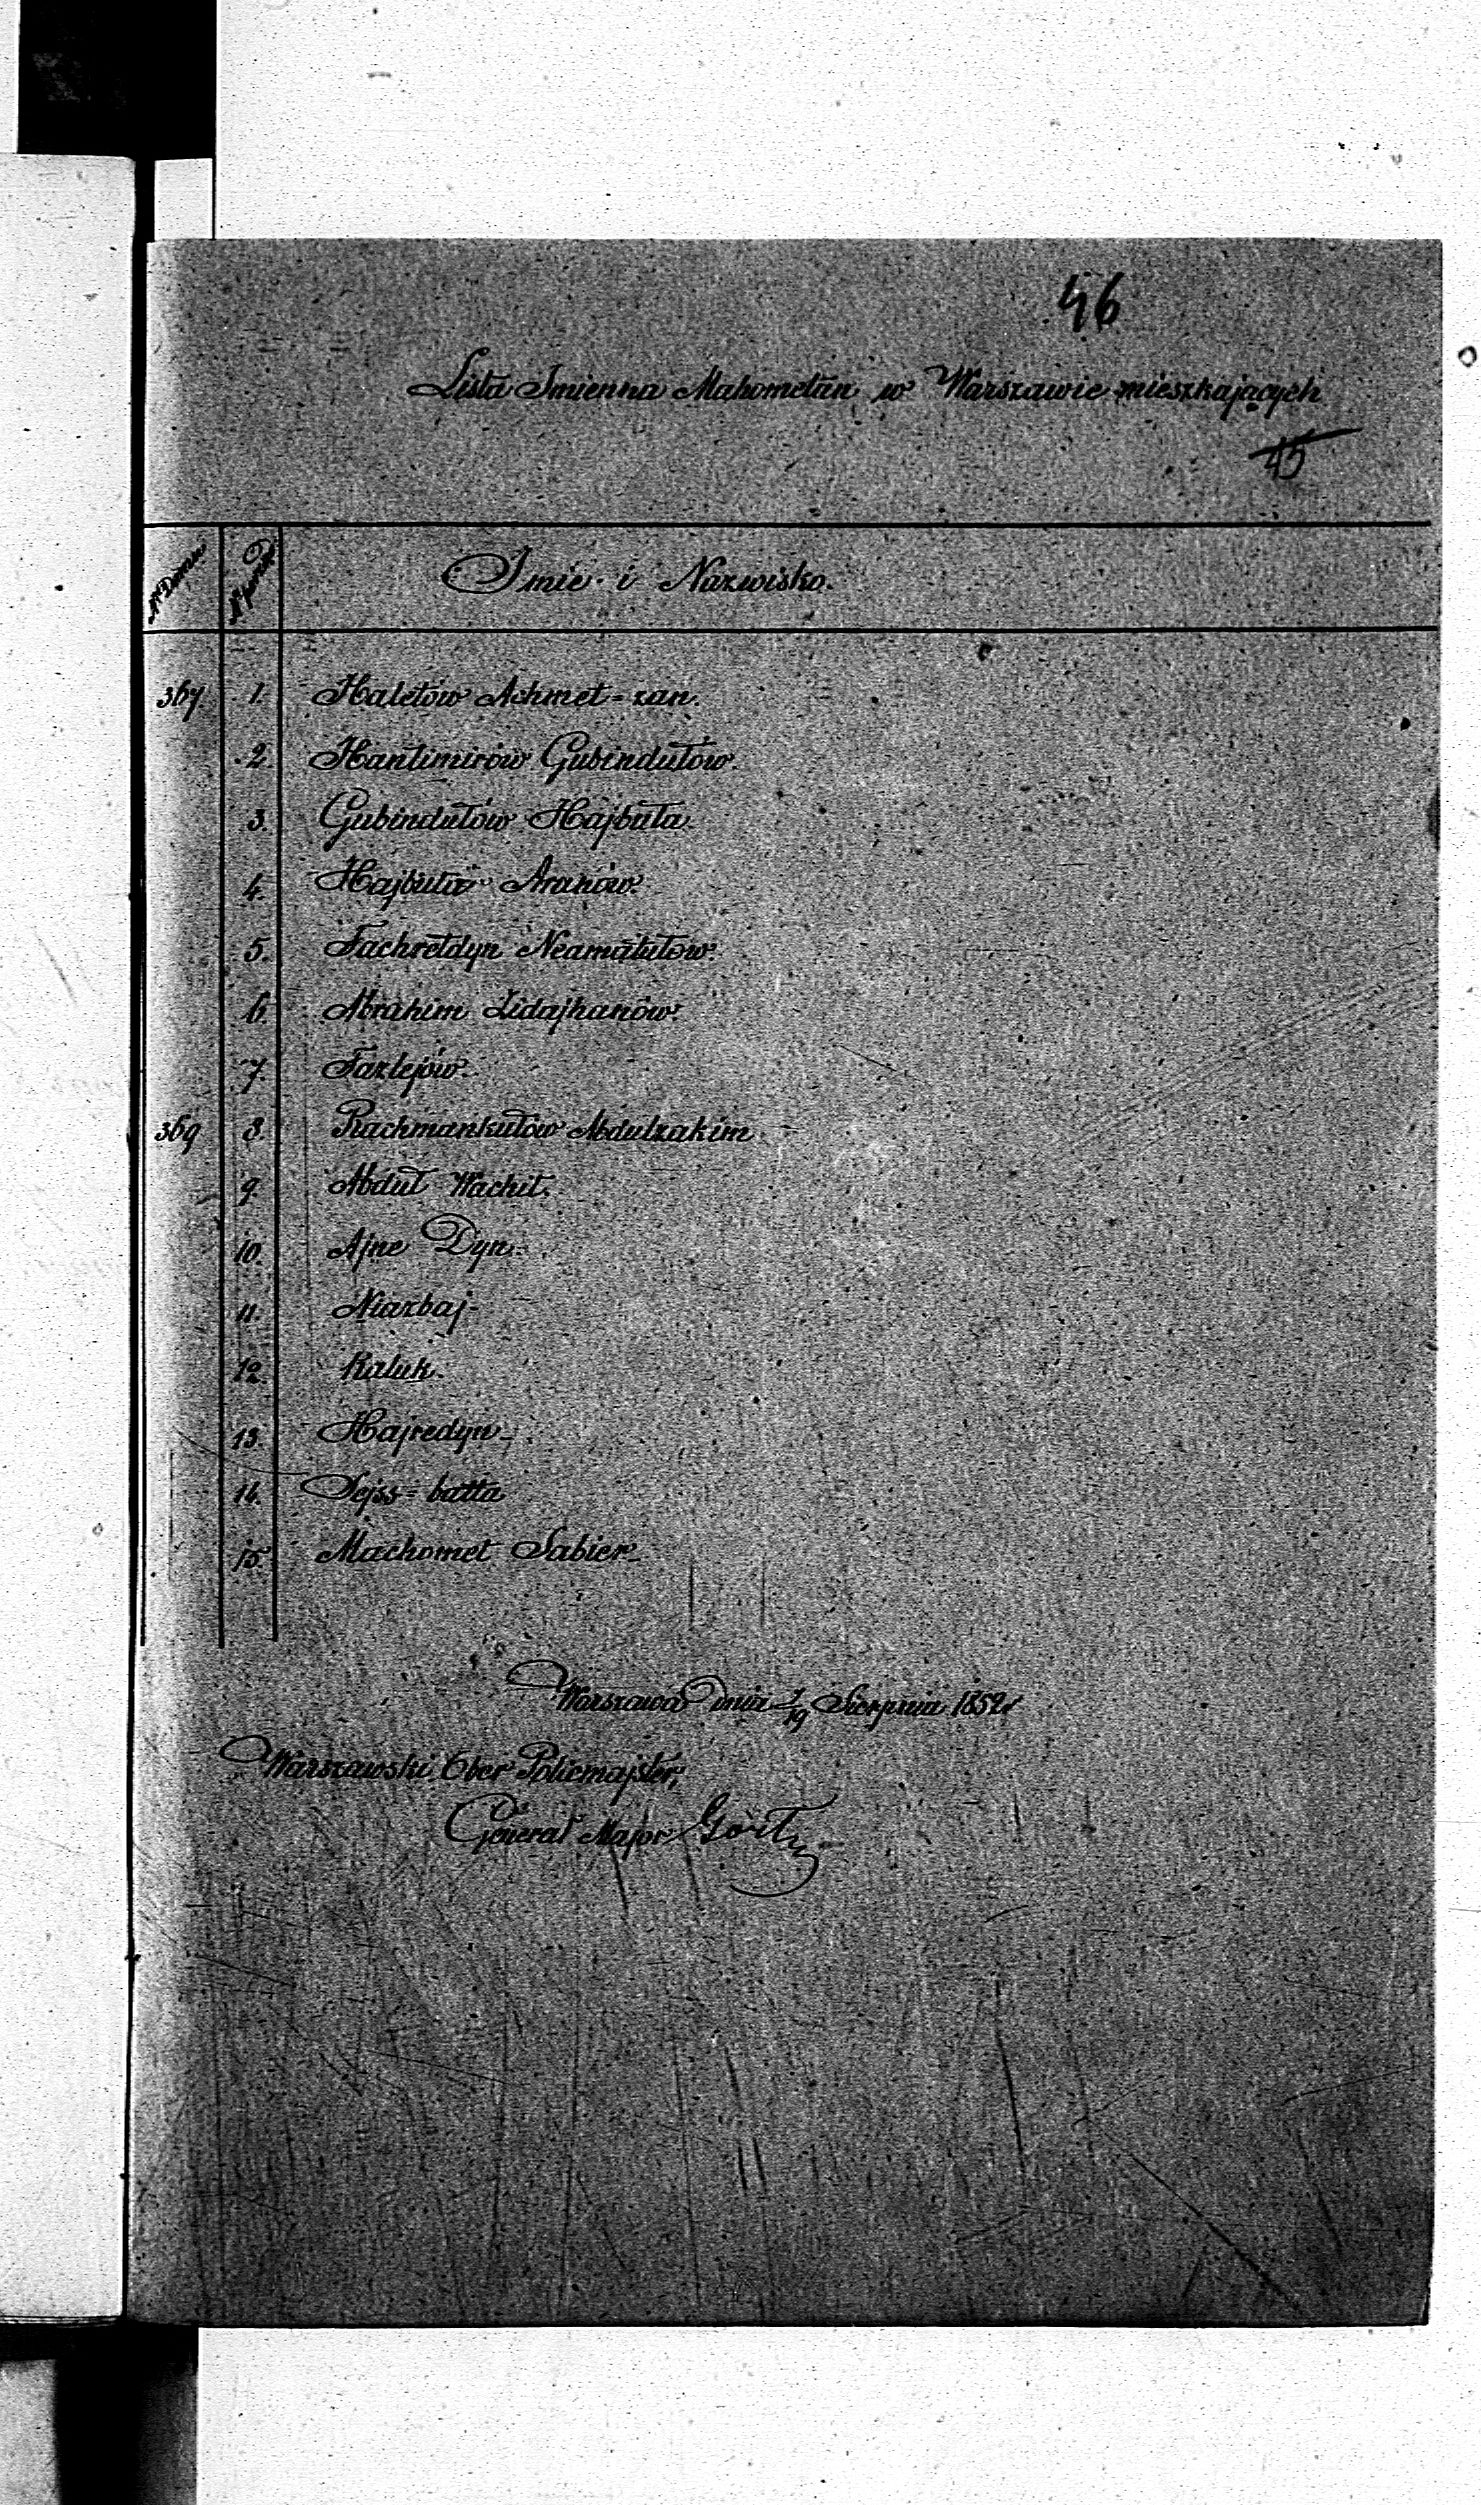 46
Lista Imienna Mahometan w Warszawie mieszkających
45
Nr Domu Nr porząd Imie i Nazwisko.
367. 1. Haletów Achmet=zan.
2. Hantimirów Gubindułów.
3. Gubindułów Hajbuła
4. Hajbuła Aranów.
5. Fachretdyn Neamatułow.
6. Abrahim Zidajhanów.
7. Fazlejów.
369 8. Rachmankułów Abdulzakim
9. Abduł Wachit.
10. Ajne Dyn.
11. Niazbaj-
12. Kaluk.
13. Hajredyn-
14. Dejss=batta
15. Machomet Sabier-
Warszawa dnia 7/19 Sierpnia 1852 r
Warszawski Ober Policmajster,
Generał Major